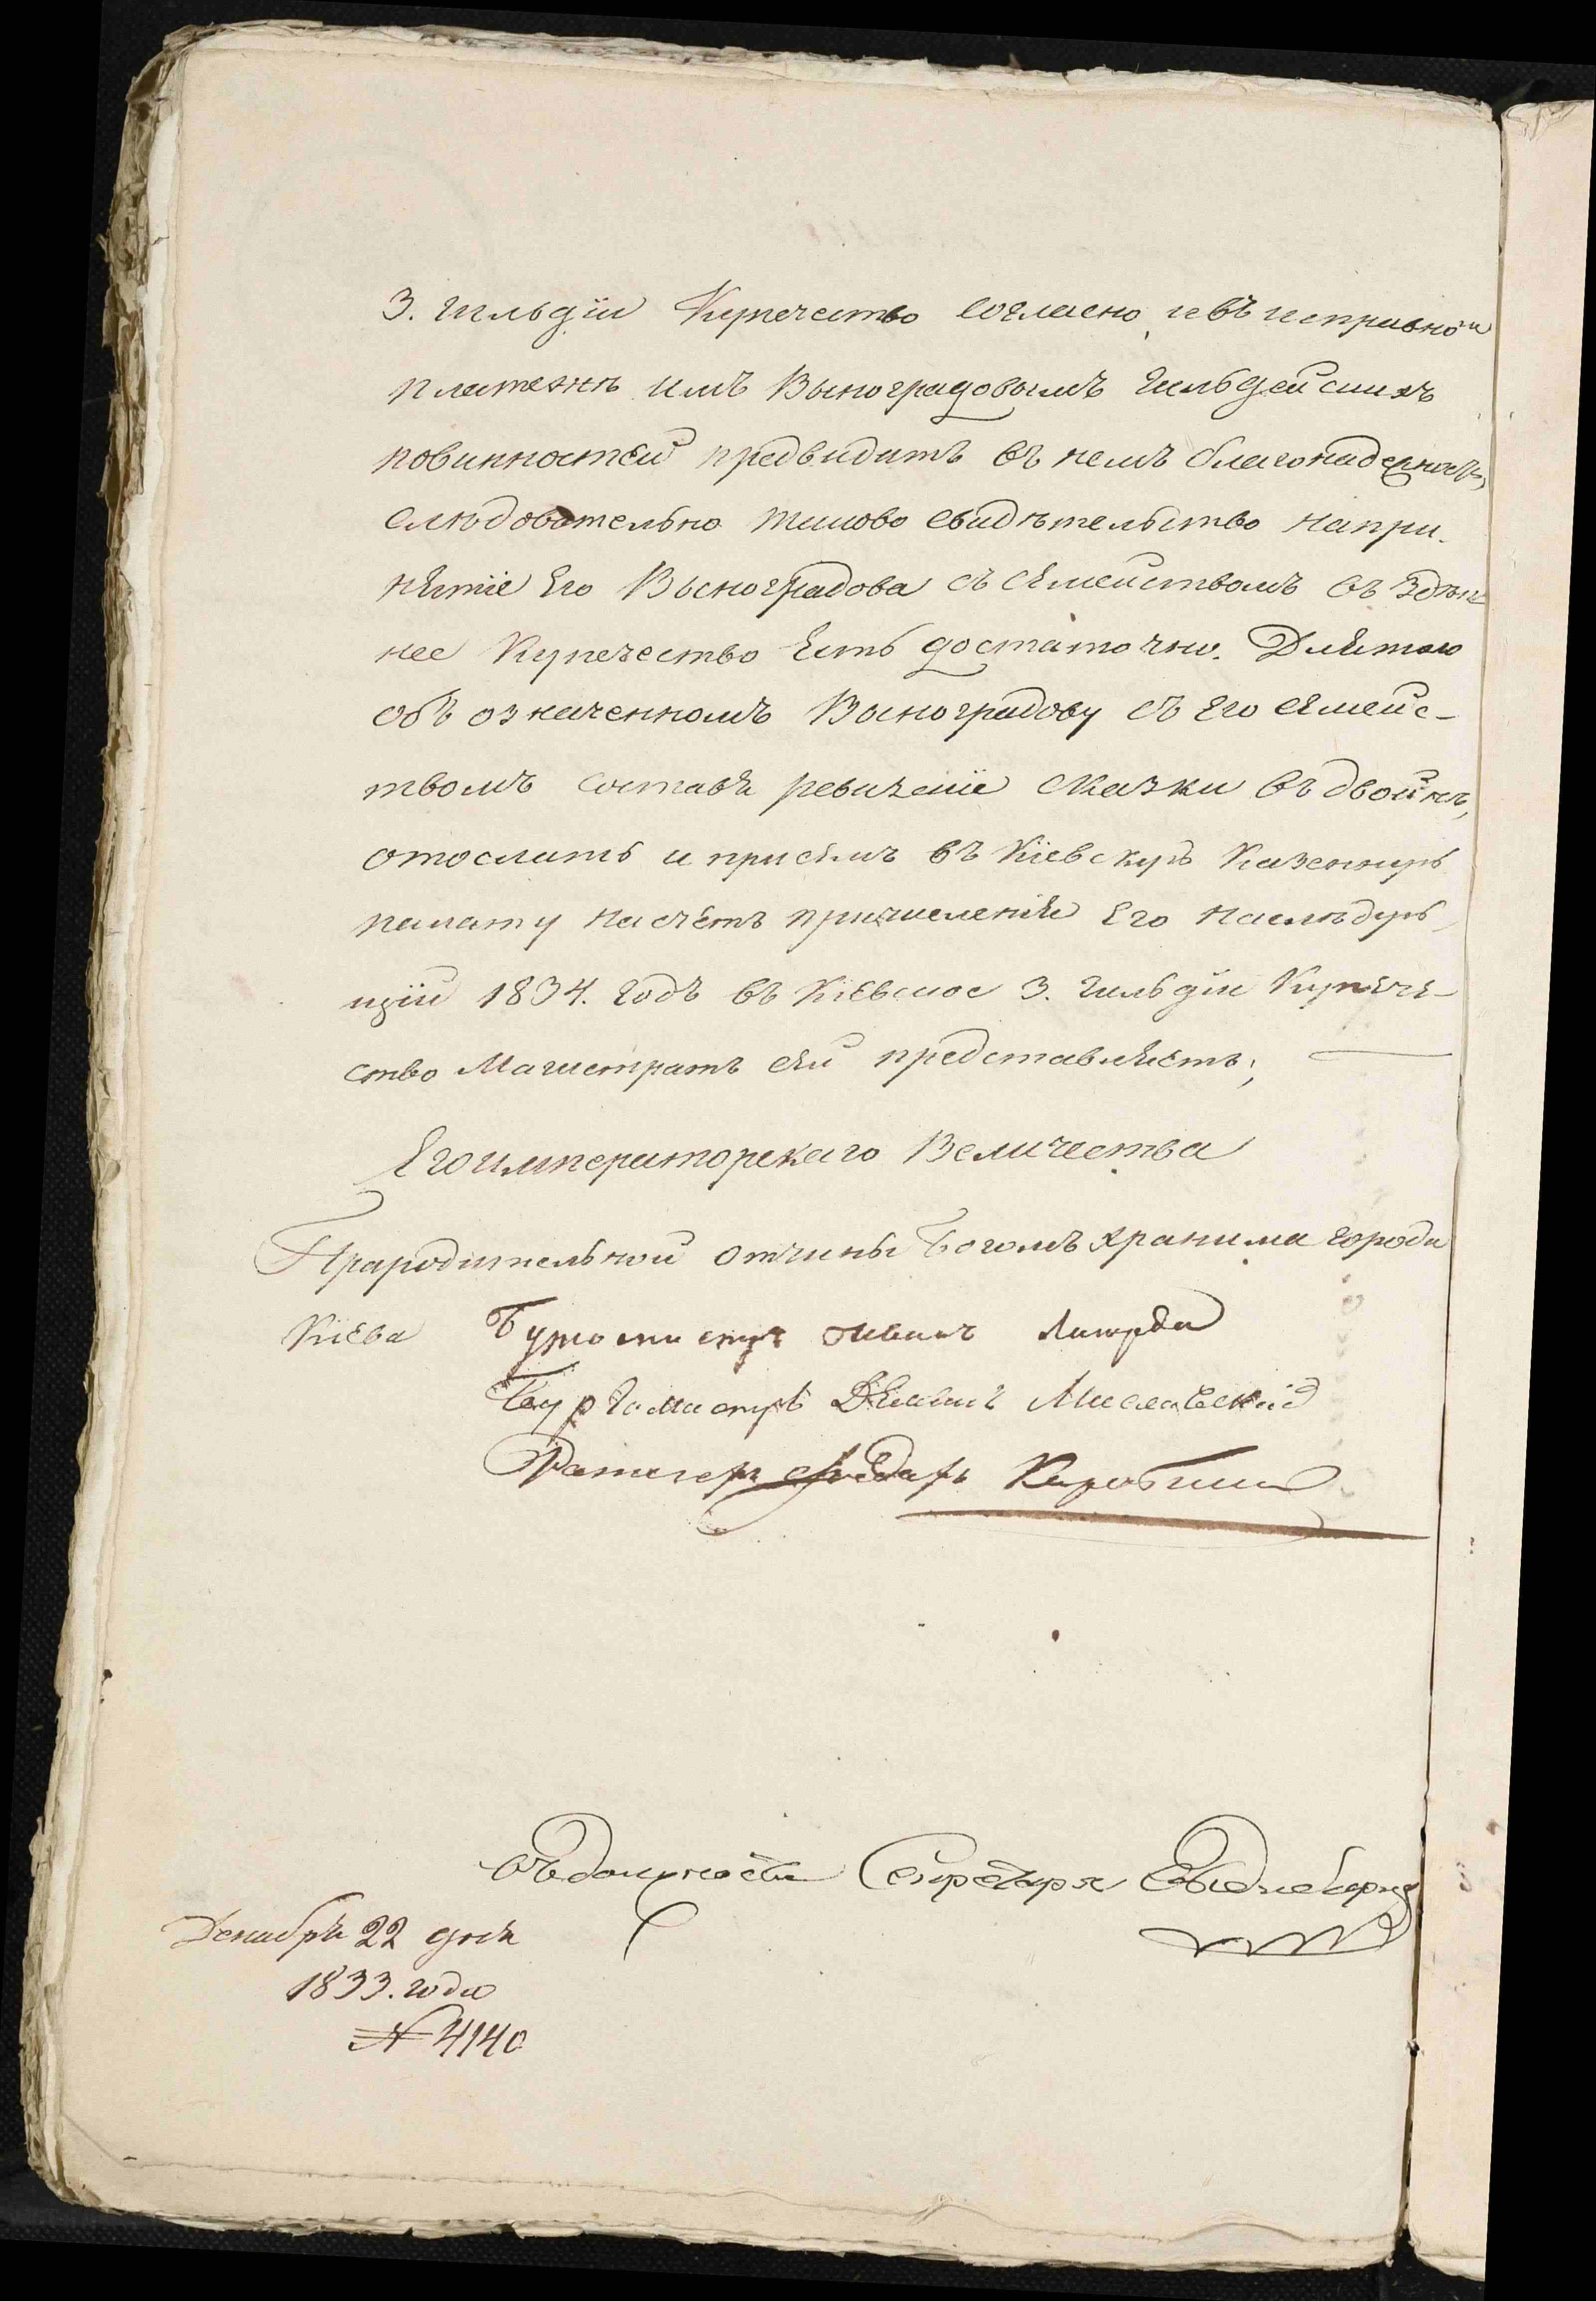 3. гильдіи Купечество согласно, и въ исправной
платежѣ имъ Выноградовымъ гильдейскихъ
повинностей предвидитъ въ немъ благонадежность,
слѣдовательно таково свидѣтельство на при-
нятіе Его Выноградова съ семействомъ въ Здѣш-
нее Купечество Есть достаточно. Для того
объ означенномъ Выноградову съ Его семейс-
твомъ составя ревизскіе сказки въ двойнѣ,
отослать и при семъ въ Кіевскую Казенную
палату на счетъ причисленія Его на слѣдую-
щій 1834. годъ въ Кіевское 3. гильдіи Купече-
ство Магистратъ сей представляетъ;
Его императорскаго Величества
Прародительной отчины Богомъ хранима города
Кіева Бургомистръ
Бургомистръ Мисловскій
Ратсгеръ Коробкин
въ должности Секретаря
Декабря 22 дня
1833. года
№ 4140